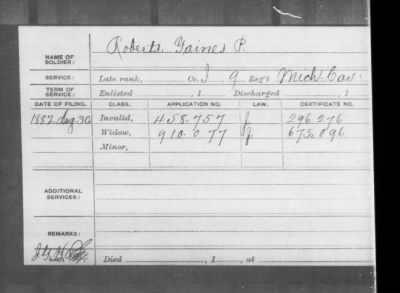 NAME OF SOLDIER: Roberts, Gaines P.
SERVICE: Late rank, Co. I, 9 Reg't Mich. Cav.
TERM OF SERVICE: Enlisted , 1 Discharged , 1
DATE OF FILING. CLASS. APPLICATION NO. LAW. CERTIFICATE NO.
1882 Aug 30 Invalid, 458.757 J 296.276
Widow, 910.077 J 675.096
Minor,
ADDITIONAL SERVICES:
REMARKS:
Died , 1 , at